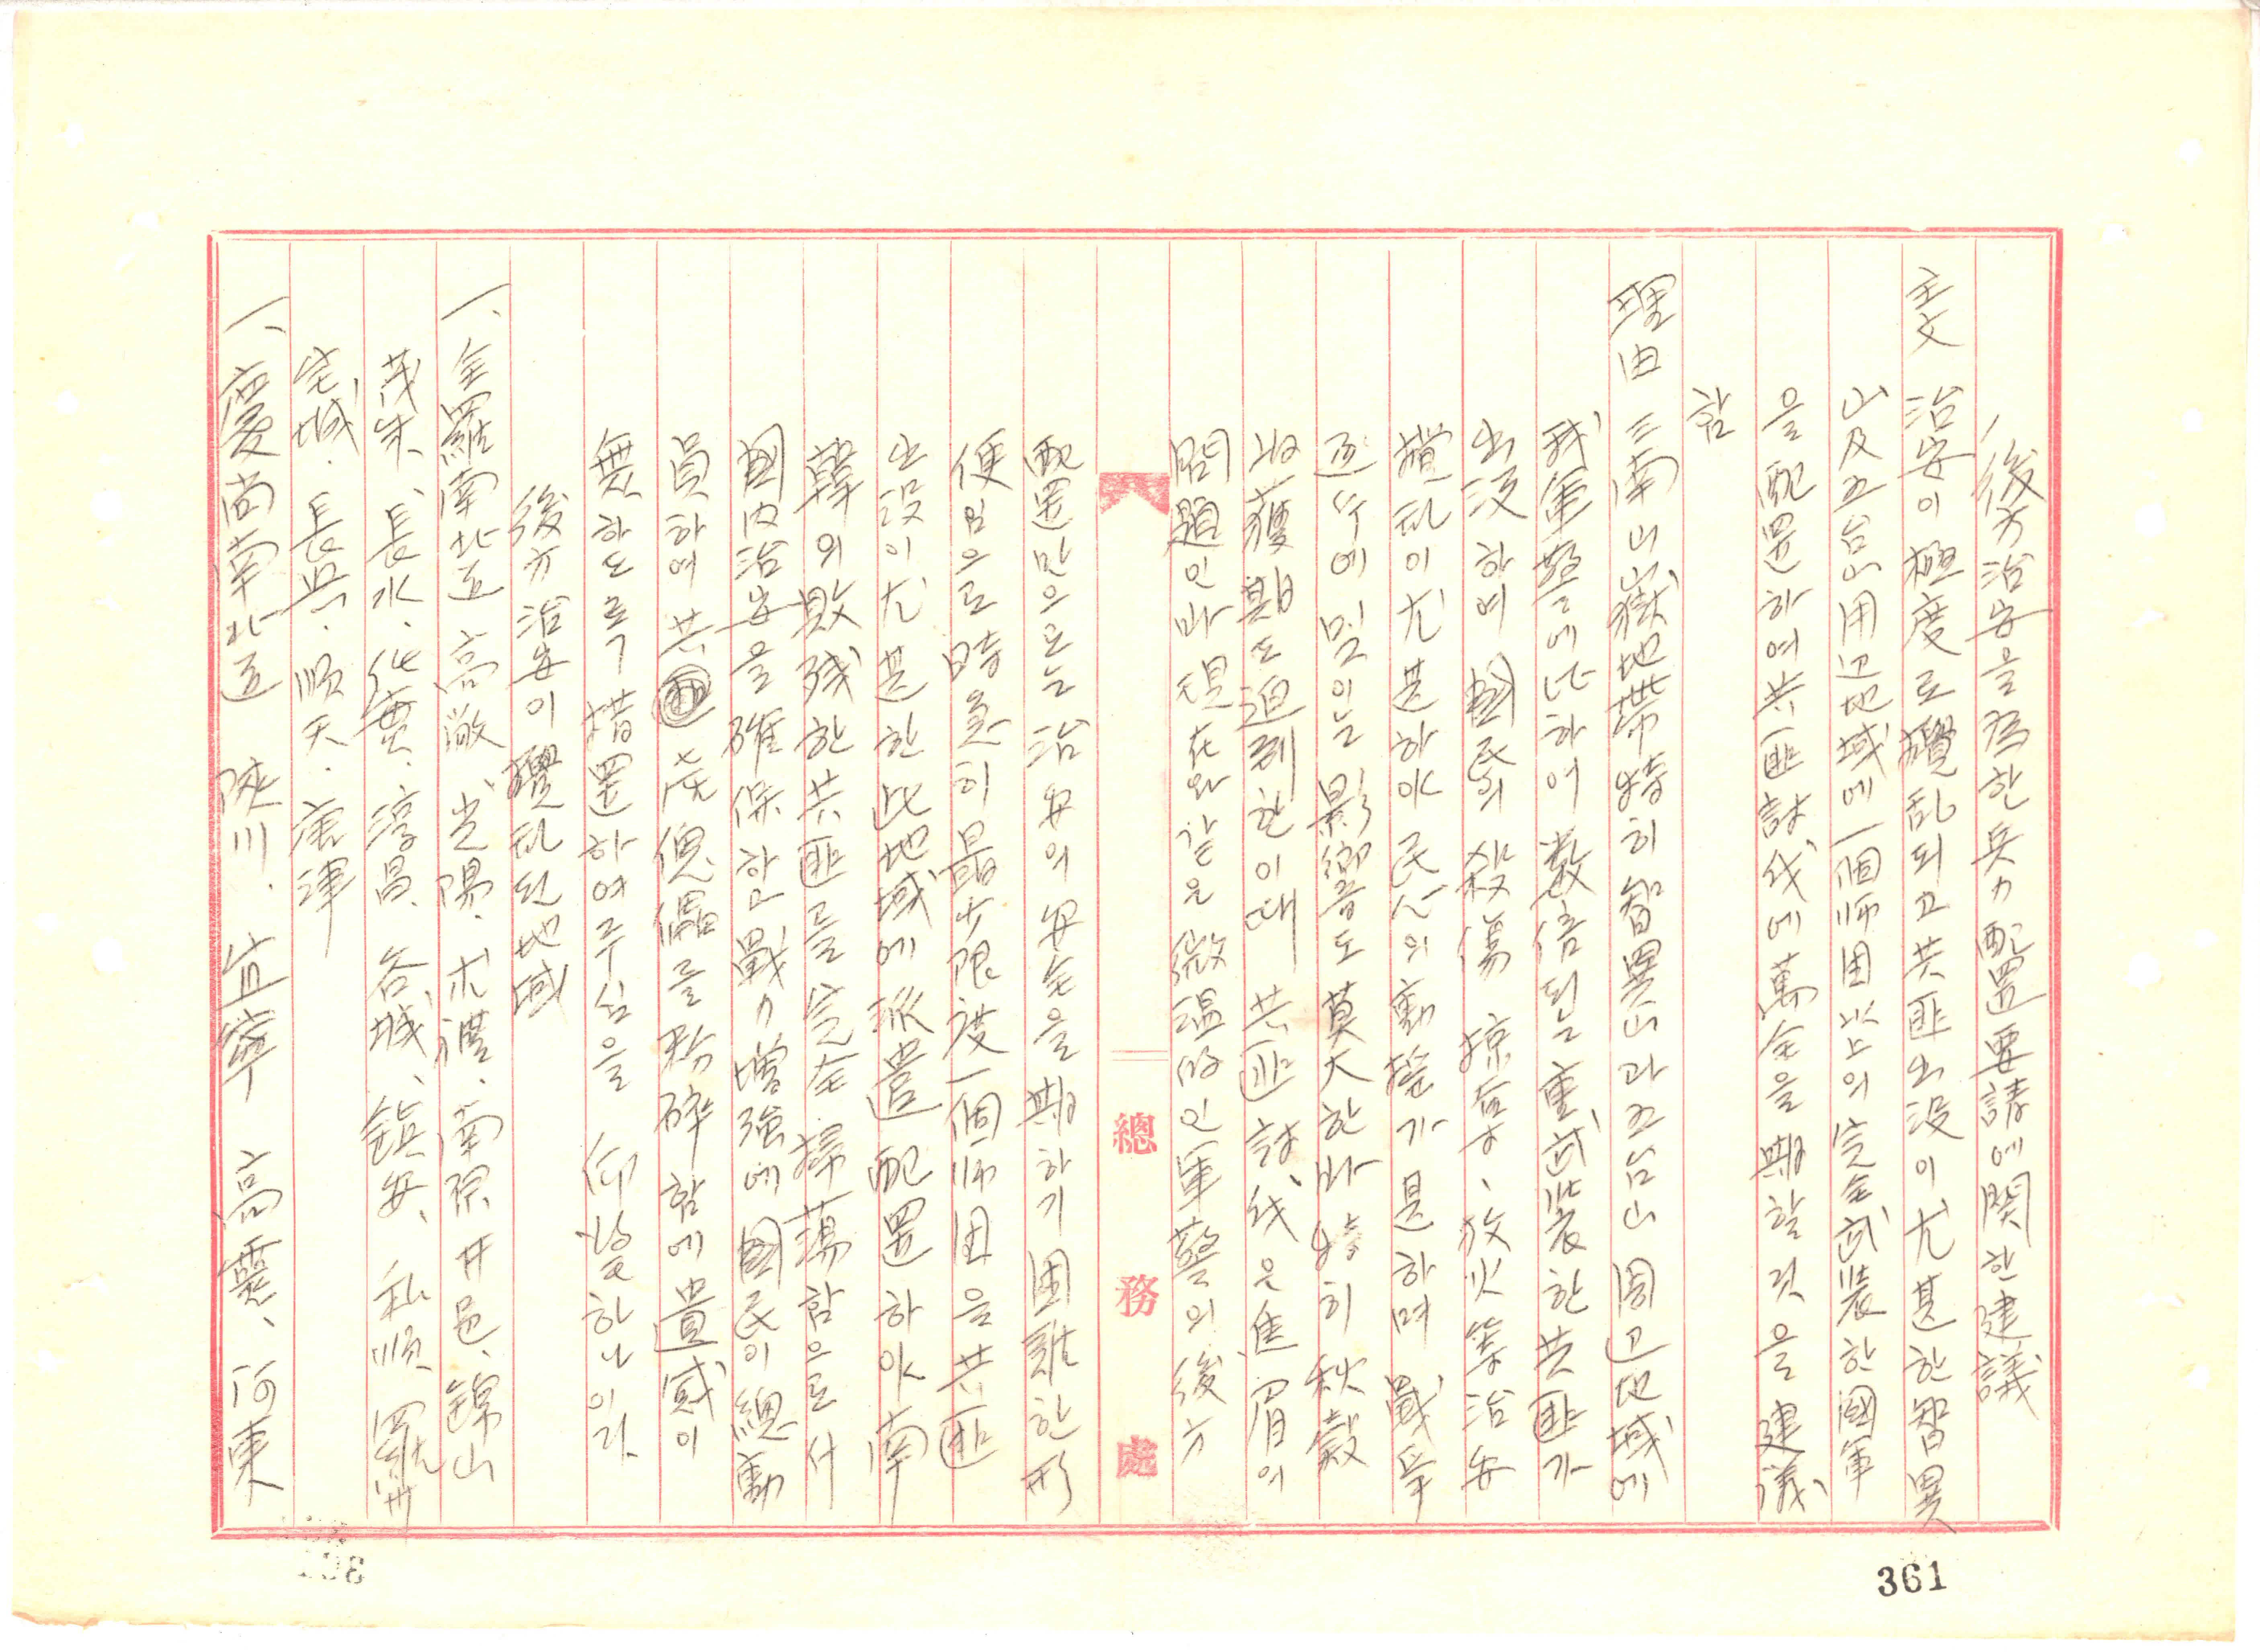 後方治安을 爲한 兵力配置要請에 関한 建議
主文 治安이 極度로 攪乱되고 共匪出没이 尤甚한 智異
山及五台山用辺地域에 一個師団以上의 完全武装한 國軍
을 配置하여 共匪討伐에 萬全을 期할 것을 建議
함
理由 三南山山嶽地帶 特히 智異山과 五台山 周辺地域에
我軍警에 比하여 数倍되는 重武装한 共匪가
出没하여 國民의 殺傷 掠奪、放火 等 治安
攪乱이 尤甚하야 民心의 動搖가 是하며 戰爭
遂行에 밋이는 影響도 莫大한 바 特히 秋穀
收獲期도 迫到한 이때 共匪 討伐은 焦眉의
問題인 바 現在와 같은 微温的인 軍警의 後方
總務處
配置만으로는 治安의 安全을 期하기 困難한 形
便임으로 時急히 最少限度 一個師団을 共匪
出没이 尤甚한 此地域에 派遣 配置하야 南
韓의 敗残한 共匪를 完全 掃蕩함으로서
國內治安을 確保하고 戰力增强에 國民이 總動
員하여 共産傀儡를 粉碎함에 遺憾이
無하도록 措置하여 주심을 仰望하나이다
後方治安이 攪乱된 地域
一、全羅南北道 高敞、光陽、求禮、南原、井邑、錦山
茂朱、長水、化順、淳昌、谷城、鎮安、和順、羅州
宝城、長興、順天、康津
一、慶尚南北道 陜川、宜寧 高靈、河東
361